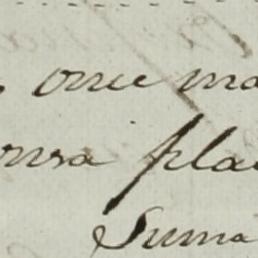 once ma
onsa pla
Suma